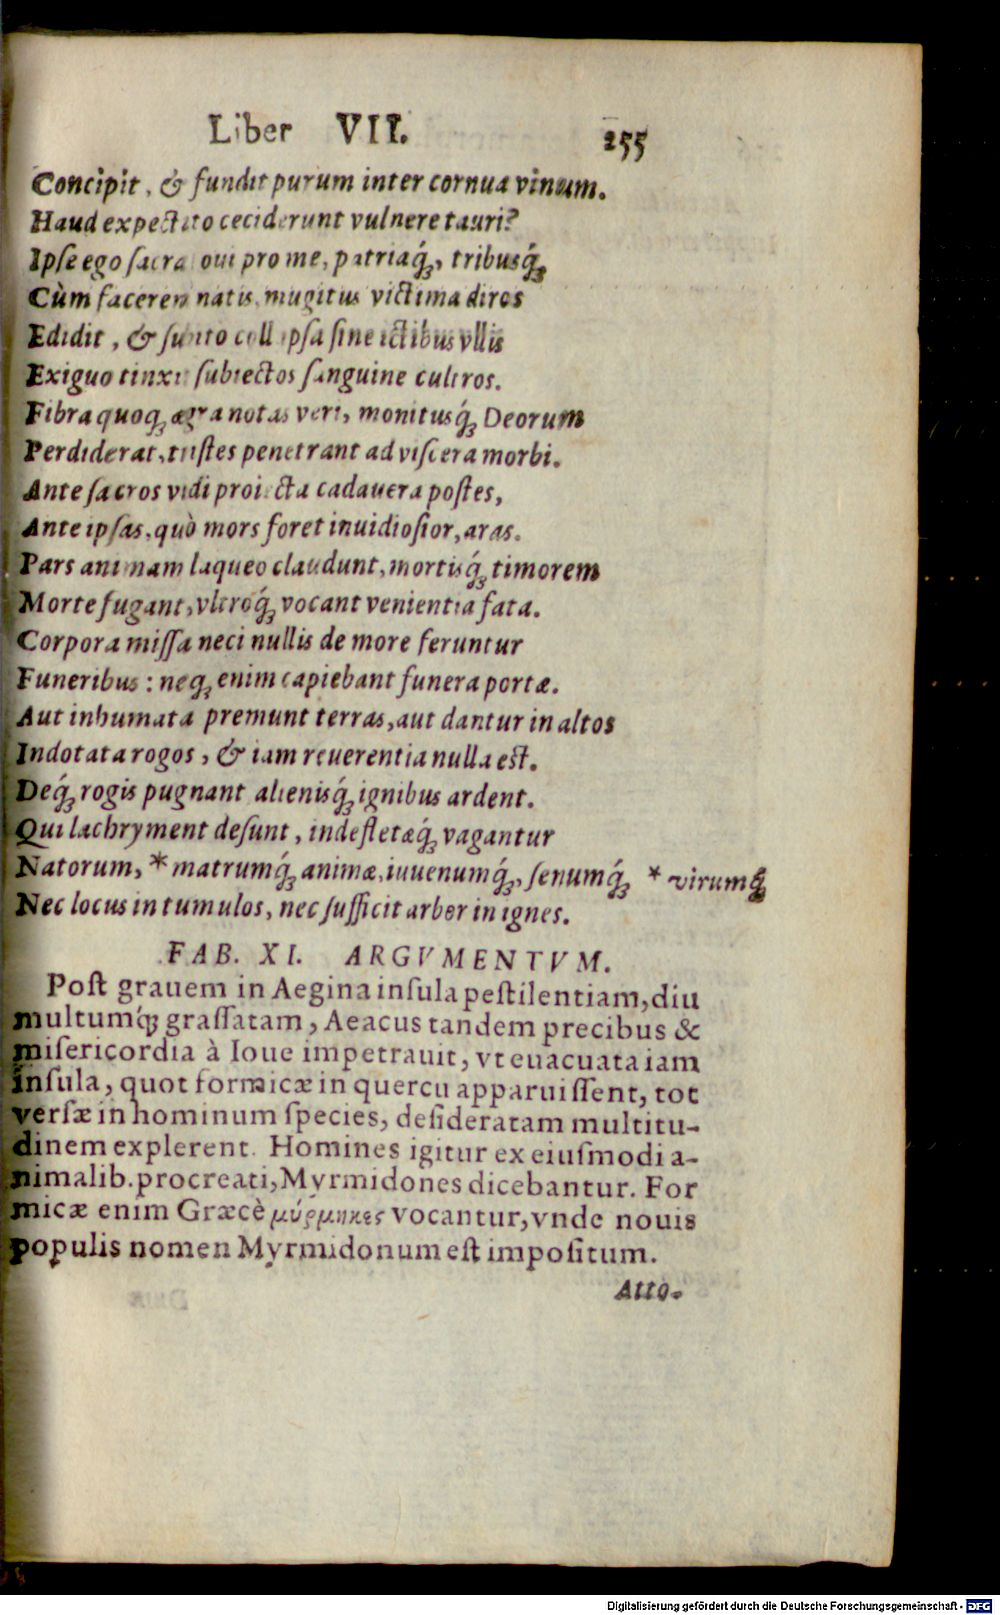 Liber VII. 255
Concipit, & fundit purum inter cornua vinum.
Haud expectato ceciderunt vulnere tauri?
Ipse ego sacra Ioui pro me, patriaq́;, tribusq́;
Cùm facerem natis, mugitus victima diros
Edidit, & subito collapsa sine ictibus vllis
Exiguo tinxit subiectos sanguine cultros.
Fibra quoq; ægra notas veri, monitusq́; Deorum
Perdiderat, tristes penetrant ad viscera morbi.
Ante sacros vidi proiecta cadauera postes,
Ante ipsas, quò mors foret inuidiosior, aras.
Pars animam laqueo claudunt, mortisq́; timorem
Morte fugant, vltroq́; vocant venientia fata.
Corpora missa neci nullis de more feruntur
Funeribus: neq; enim capiebant funera portæ.
Aut inhumata premunt terras, aut dantur in altos
Indotata rogos, & iam reuerentia nulla est.
Deq́; rogis pugnant alienisq́; ignibus ardent.
Qui lachryment desunt, indefletæq́; vagantur
Natorum, * matrumq́; animæ, iuuenumq́;, senumq́; * virumq́;
Nec locus in tumulos, nec sufficit arbor in ignes.
FAB. XI. ARGVMENTVM.
Post grauem in Aegina insula pestilentiam, diu
multumq́; grassatam, Aeacus tandem precibus &
misericordia à Ioue impetrauit, vt euacuata iam
insula, quot formicæ in quercu apparuissent, tot
versæ in hominum species, desideratam multitu-
dinem explerent. Homines igitur ex eiusmodi a-
nimalib. procreati, Myrmidones dicebantur. For
micæ enim Græcè μύρμηκες vocantur, vnde nouis
populis nomen Myrmidonum est impositum.
Atto-
Digitalisierung gefördert durch die Deutsche Forschungsgemeinschaft - DFG